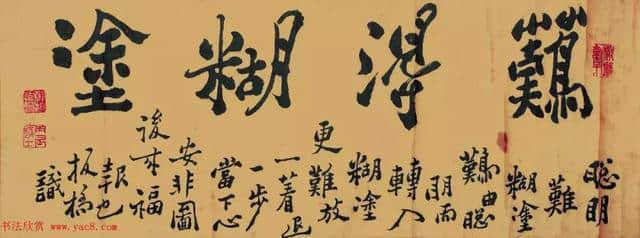 難得糊塗
聰明
難
糊塗
難由聰
明而
轉入
糊塗
更難放
一着退
一步
當下心
安非圖
後來福
報也
板橋
識
书法欣赏
www.yac8.com